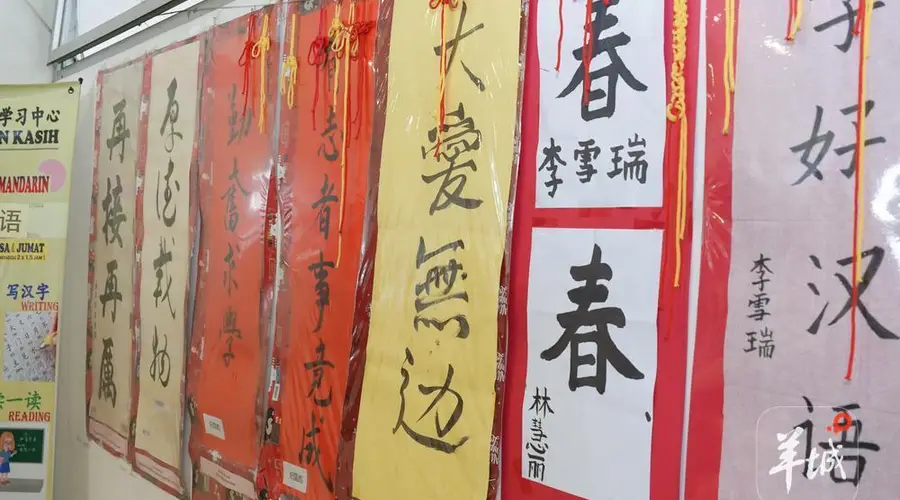 学习中心
N KASIH
MANDARIN
语
SA ( JUMAT
写汉字
WRITING
一读
READING
再接再厲
厚德载物
勤奮求学
有志者事竟成
大愛無边
春
李雪瑞
春
林慧丽
学好汉语
李雪瑞
羊城